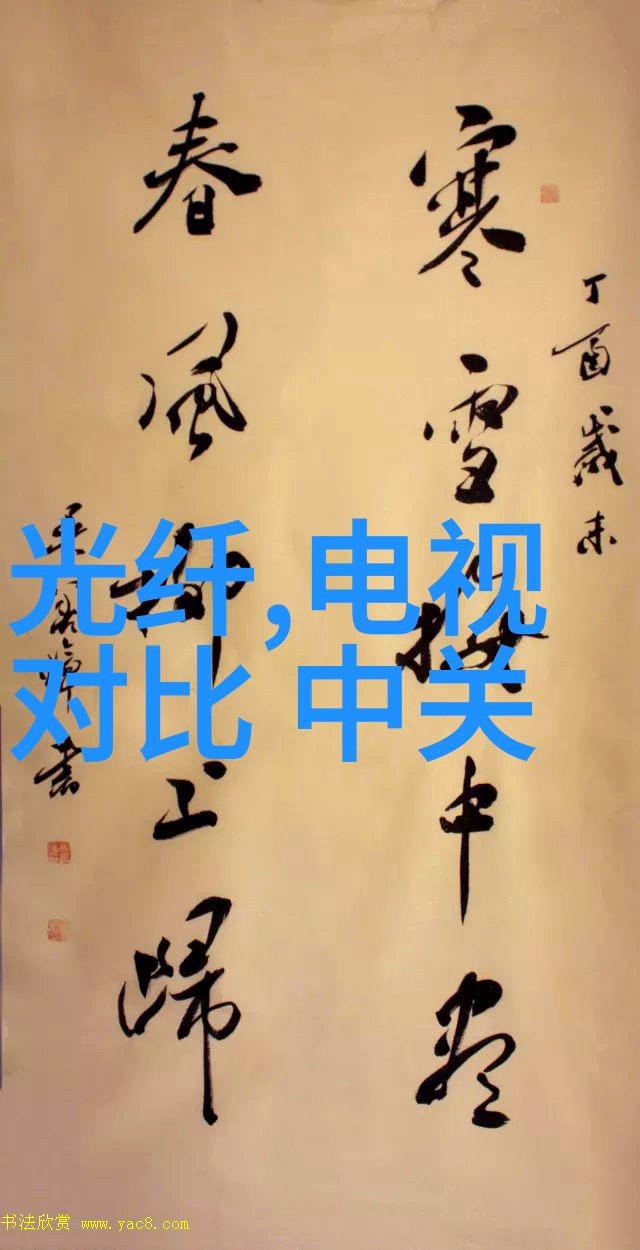 丁酉歲末
寒雪梅中尽
春風柳上歸
光纤,电视
对比 中关
书法欣赏 www.yac8.com